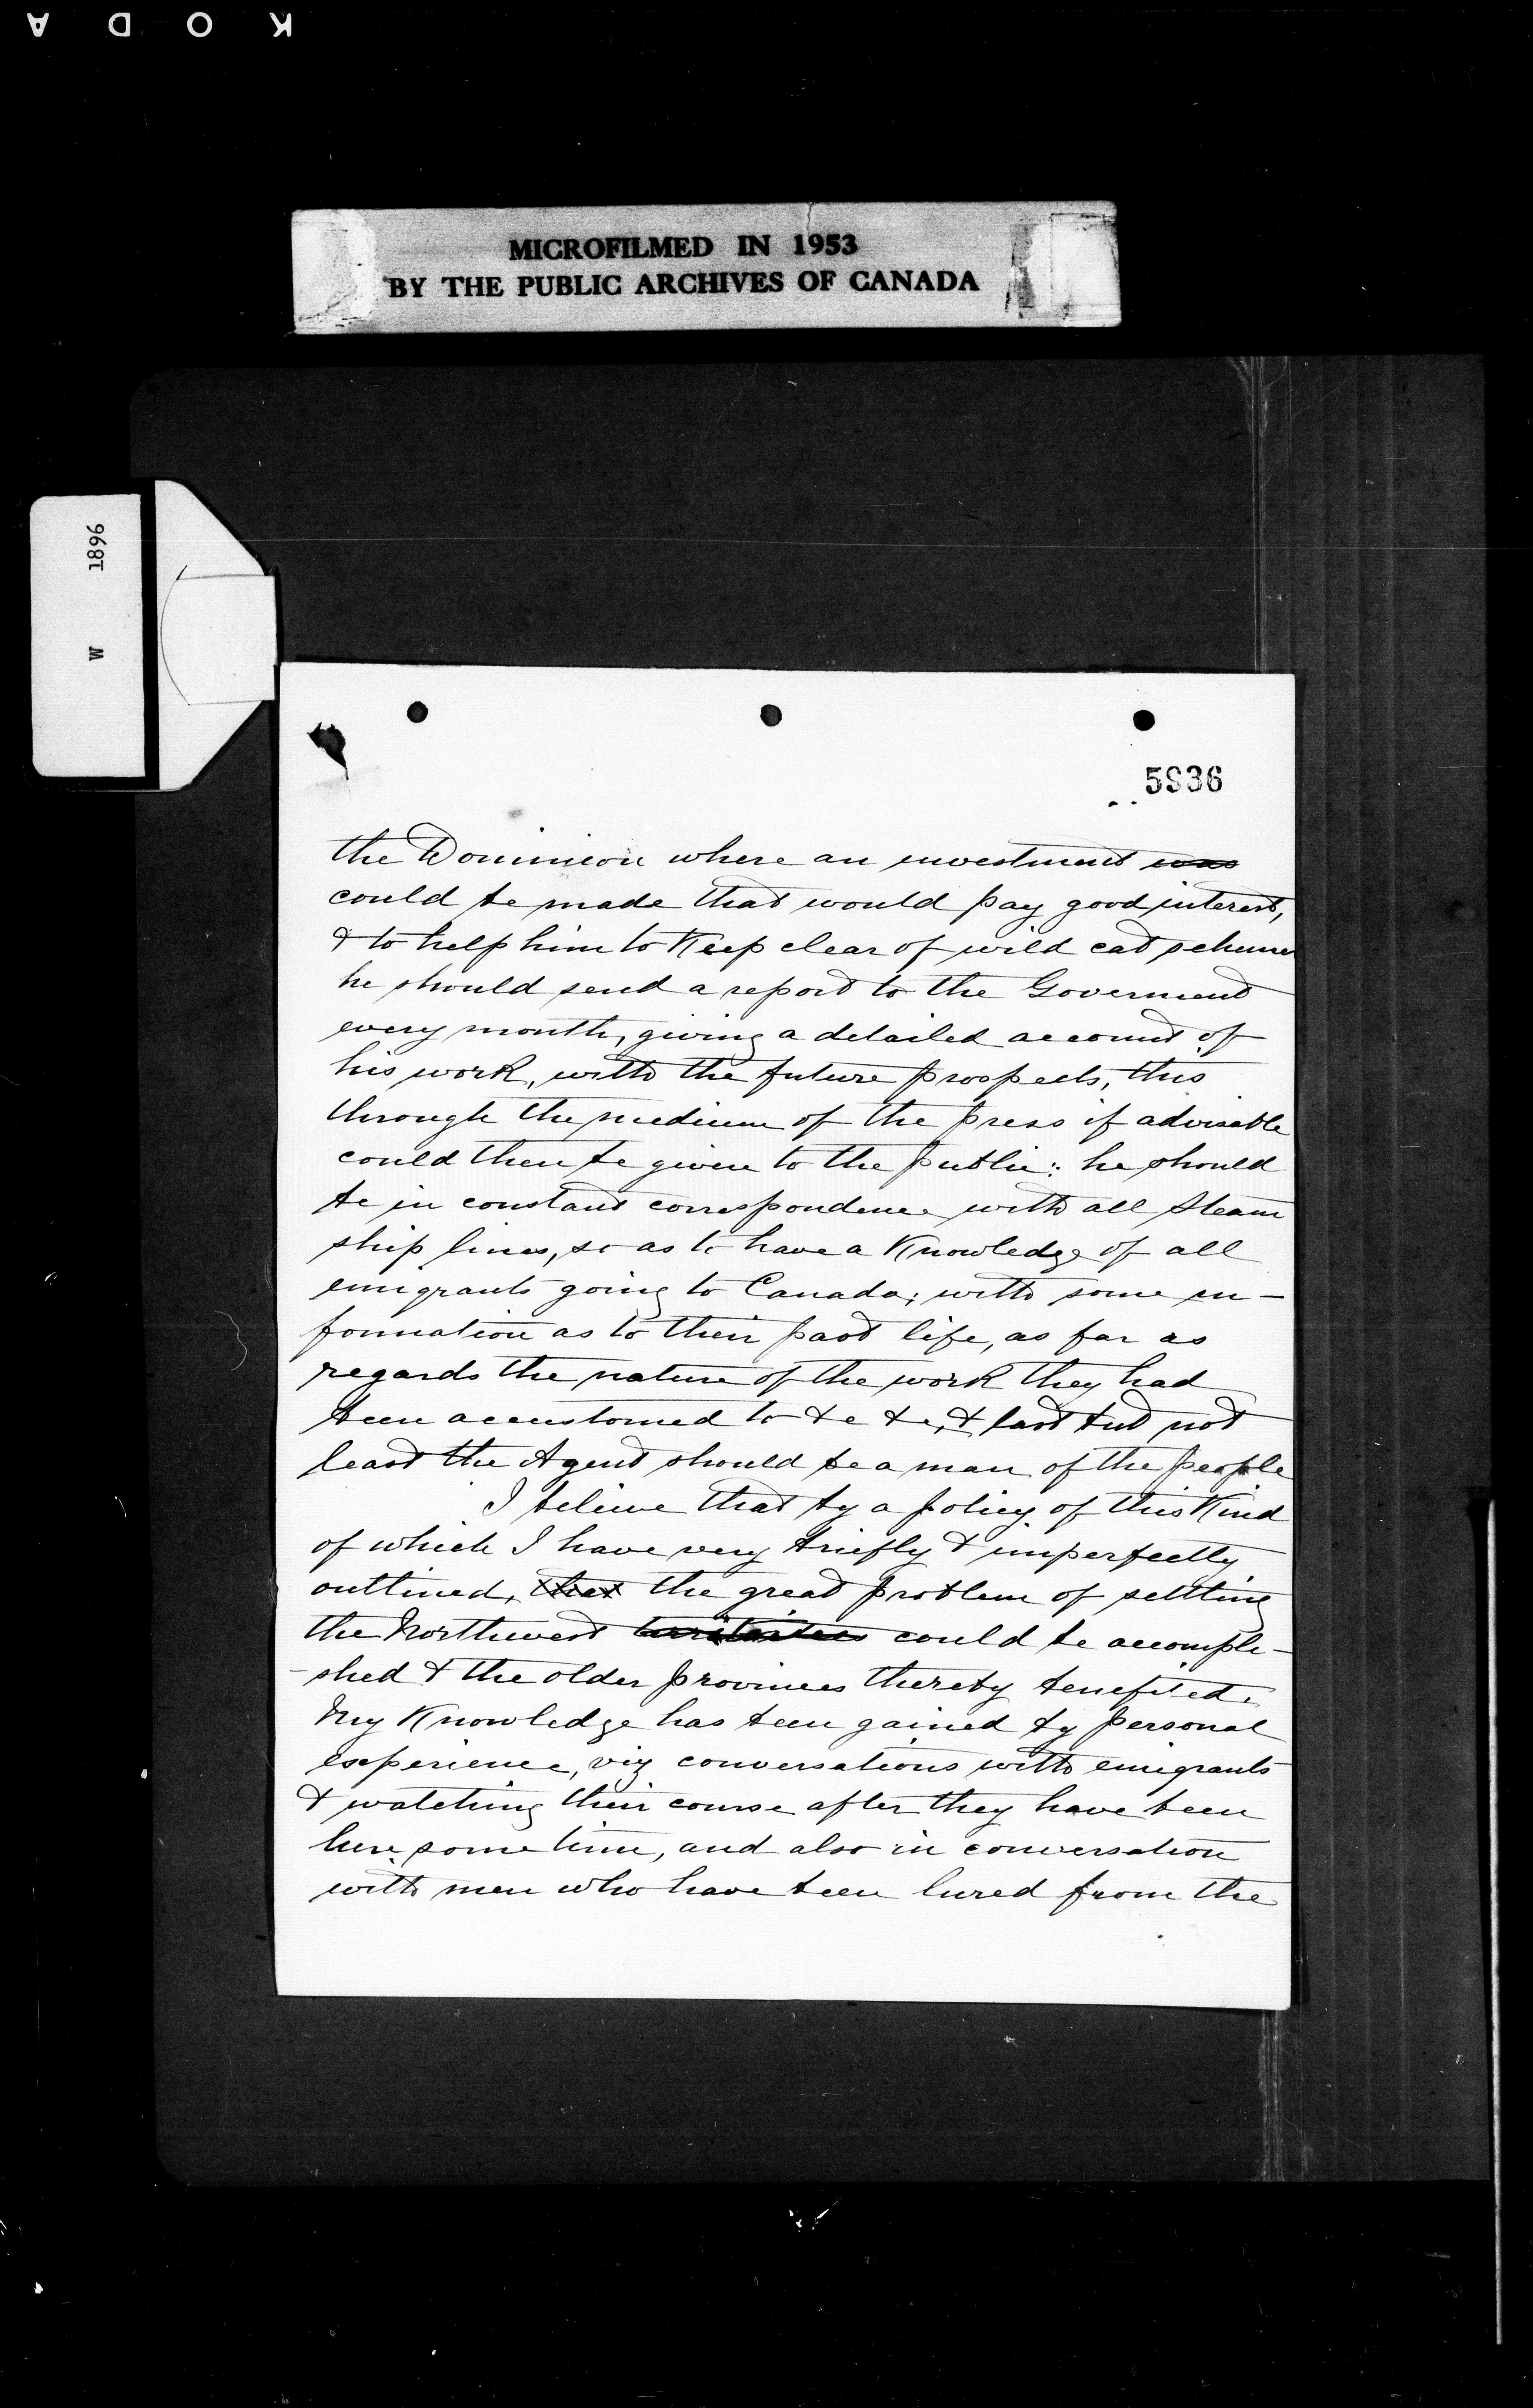 KODA
MICROFILMED IN 1953
BY THE PUBLIC ARCHIVES OF CANADA
W 1896
5936
the Dominion where an investment was
could be made that would pay good interest,
& to help him to Keep clear of wild cat schemes
he should send a report to the Goverment
every month, giving a detailed account of
his work, with the future prospects, this
through the medium of the press if advisable
could then be given to the public: he should
be in constant correspondence with all Steam
ship lines, so as to have a Knowledge of all
emigrants going to Canada; with some in-
formation as to their past life, as far as
regards the nature of the work they had
been accustomed to &c &c, & last but not
least the Agent should be a man of the people
I believe that by a policy of this Kind
of which I have very briefly & imperfectly
outlined, that the great problem of settling
the Northwest territories could be accompli-
-shed & the older provinces thereby benefited.
My Knowledge has been gained by personal
experience, viz conversations with emigrants
& watching their course after they have been
here some time, and also in conversation
with men who have been lured from the